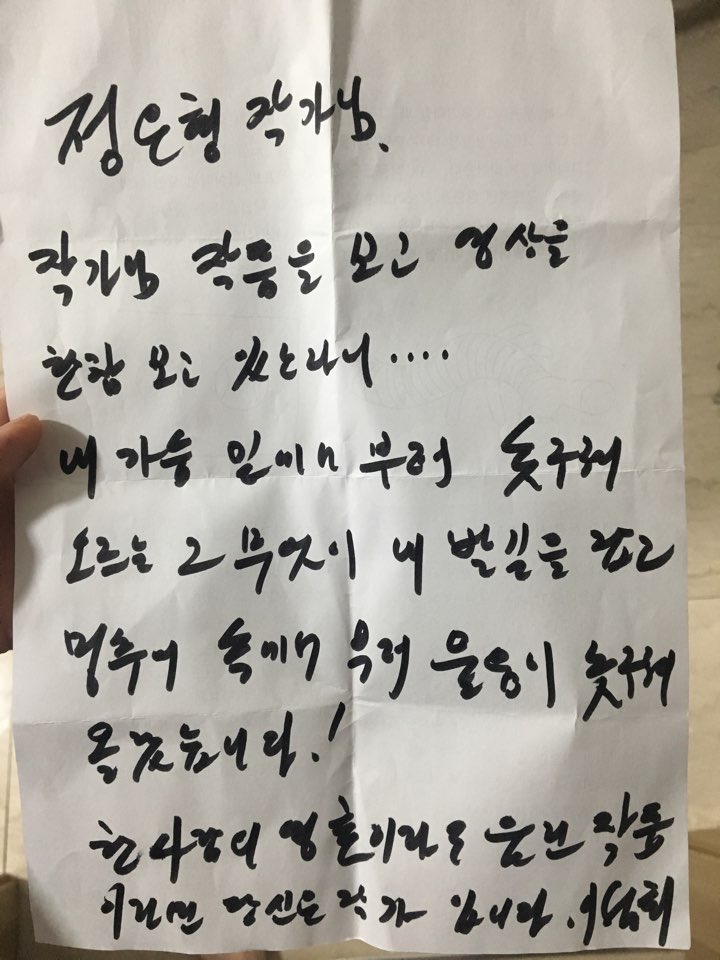 정은형 작가님.
작가님 작품을 보고 영상을
한참 보고 있노라니····
내 가슴 밑에서 부터 솟구쳐
오르는 그 무엇이 내 발길을 잡고
멈추어 속에서 부터 울음이 솟구쳐
올랐습니다!
한사람의 영혼이라도 울린 작품
이라면 당신은 작가 입니다.